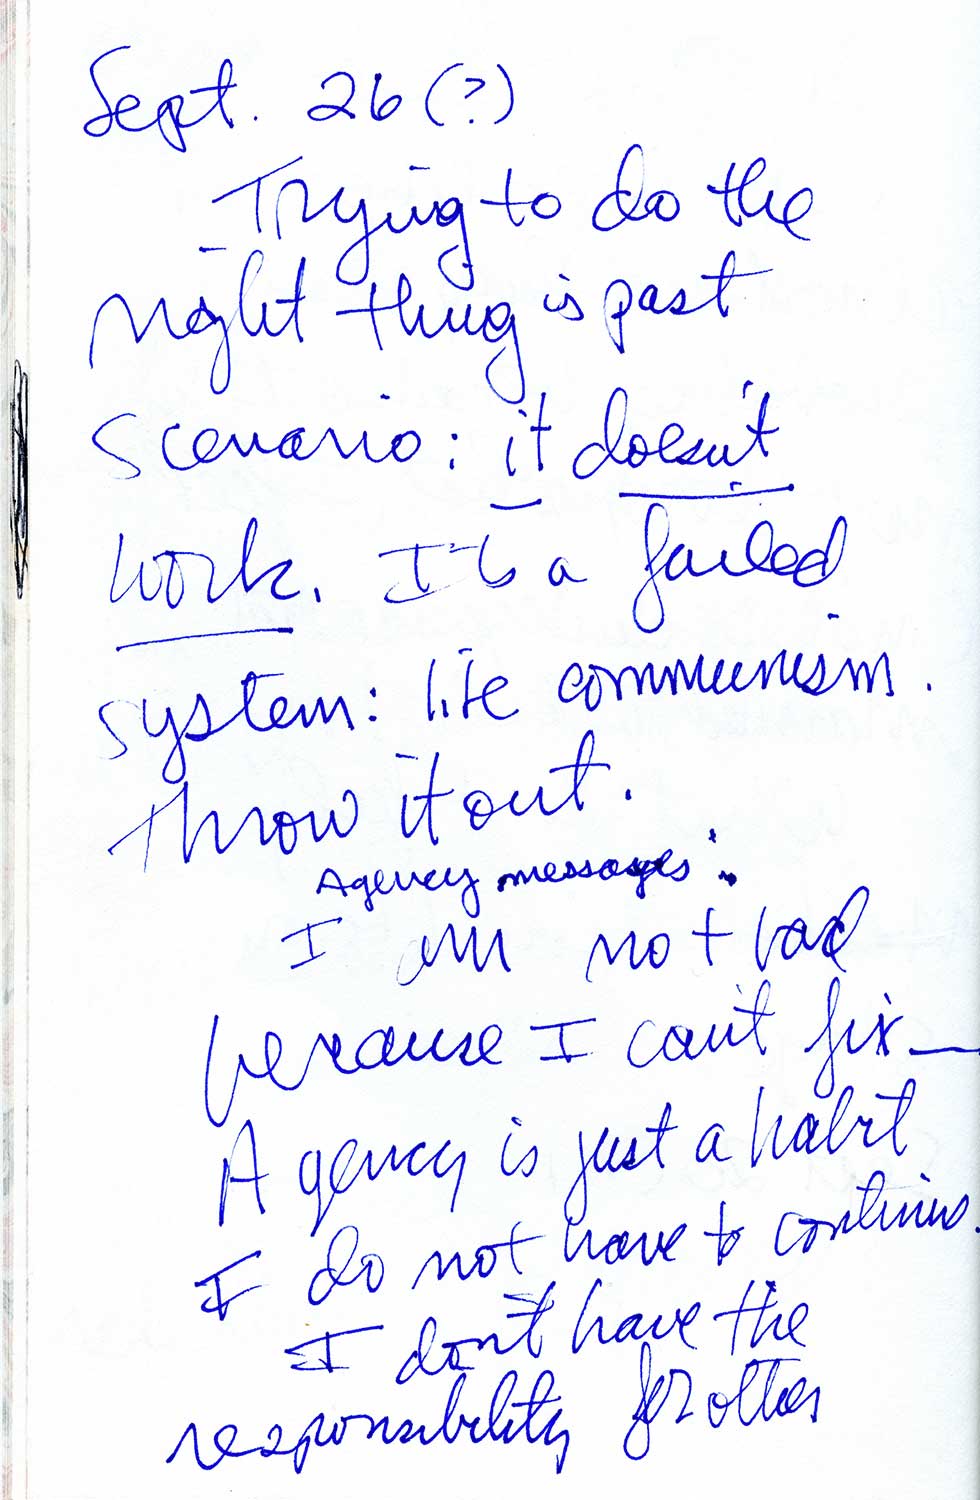 Sept. 26 (?)
Trying to do the
right thing is past
scenario: it doesn't
work. It's a failed
system: like communism.
Throw it out.
Agency messages:
I am not bad
because I can't fix —
Agency is just a habit
I do not have to continue.
I don't have the
responsibility for others